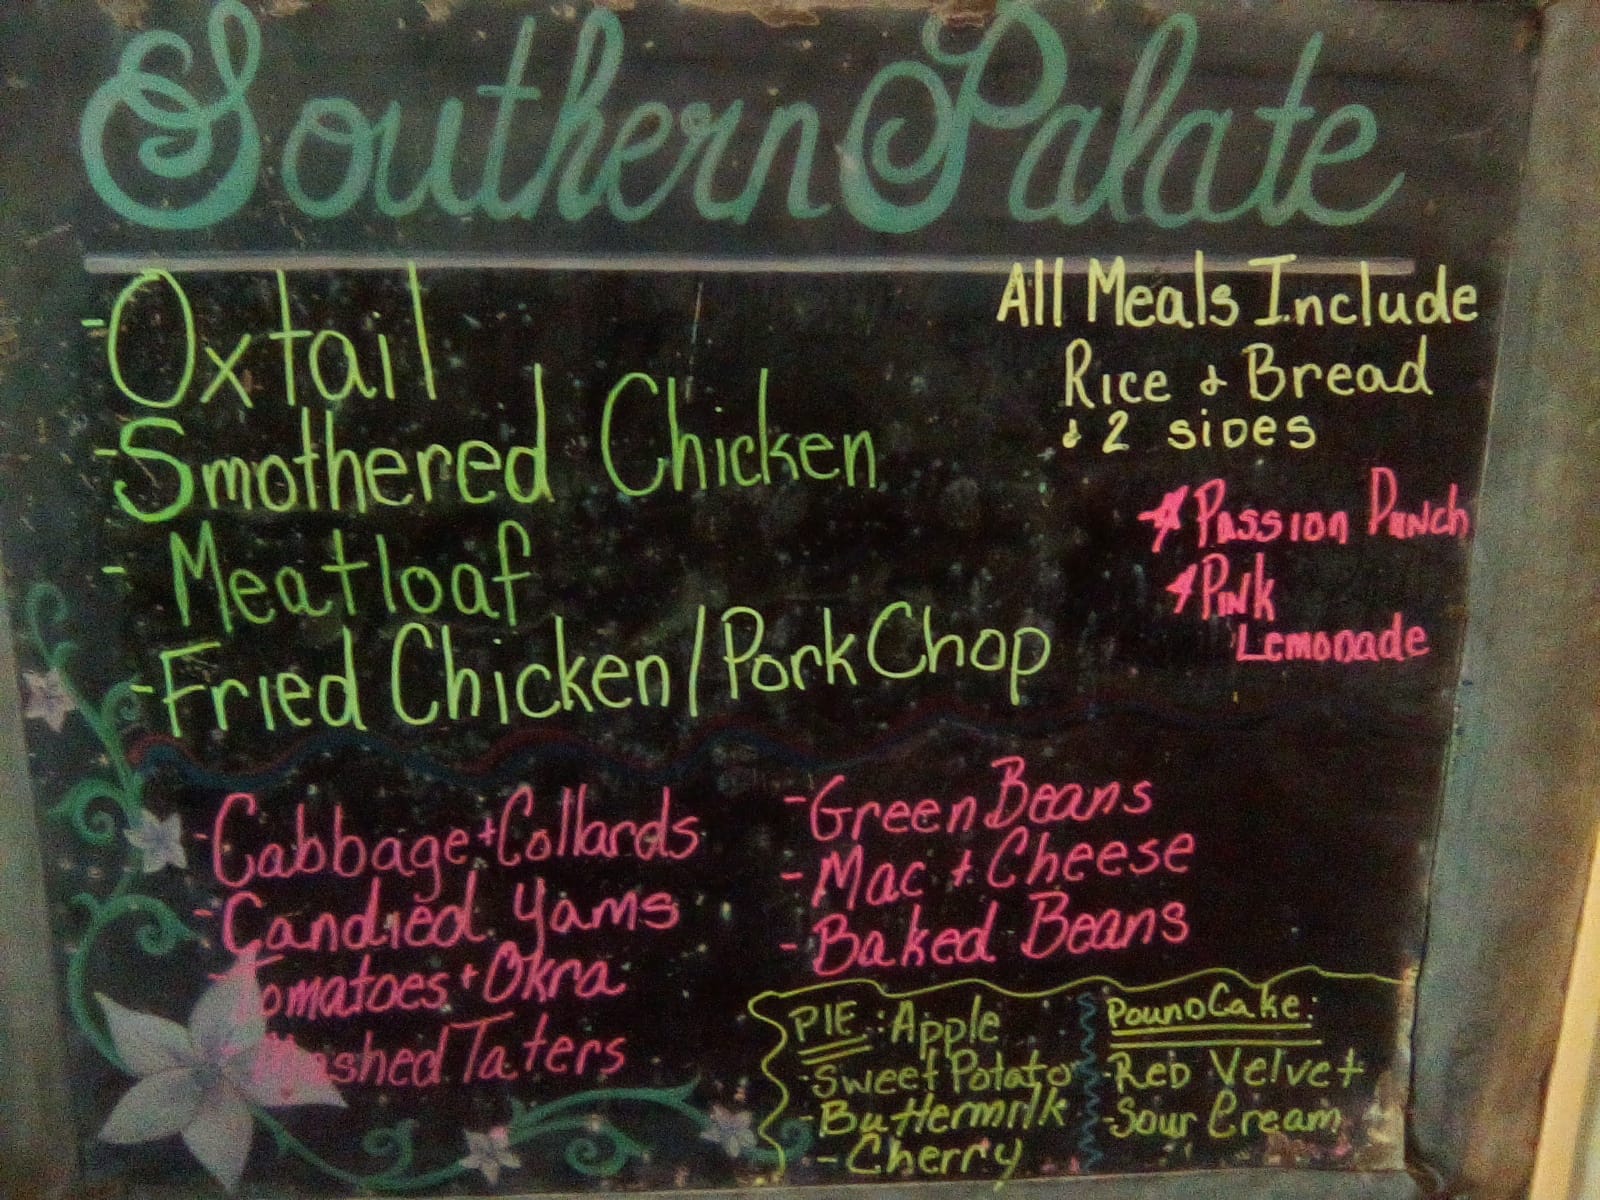 Southern Palate
-Oxtail
-Smothered Chicken
-Meatloaf
-Fried Chicken/Pork Chop
All Meals Include
Rice & Bread
& 2 sides
Passion Punch
Pink
Lemonade
-Cabbage + Collards
-Candied Yams
-Tomatoes + Okra
Mashed Taters
-Green Beans
-Mac + Cheese
-Baked Beans
PIE: Apple
-Sweet Potato
-Buttermilk
-Cherry
Pound Cake:
-Red Velvet
-Sour Cream